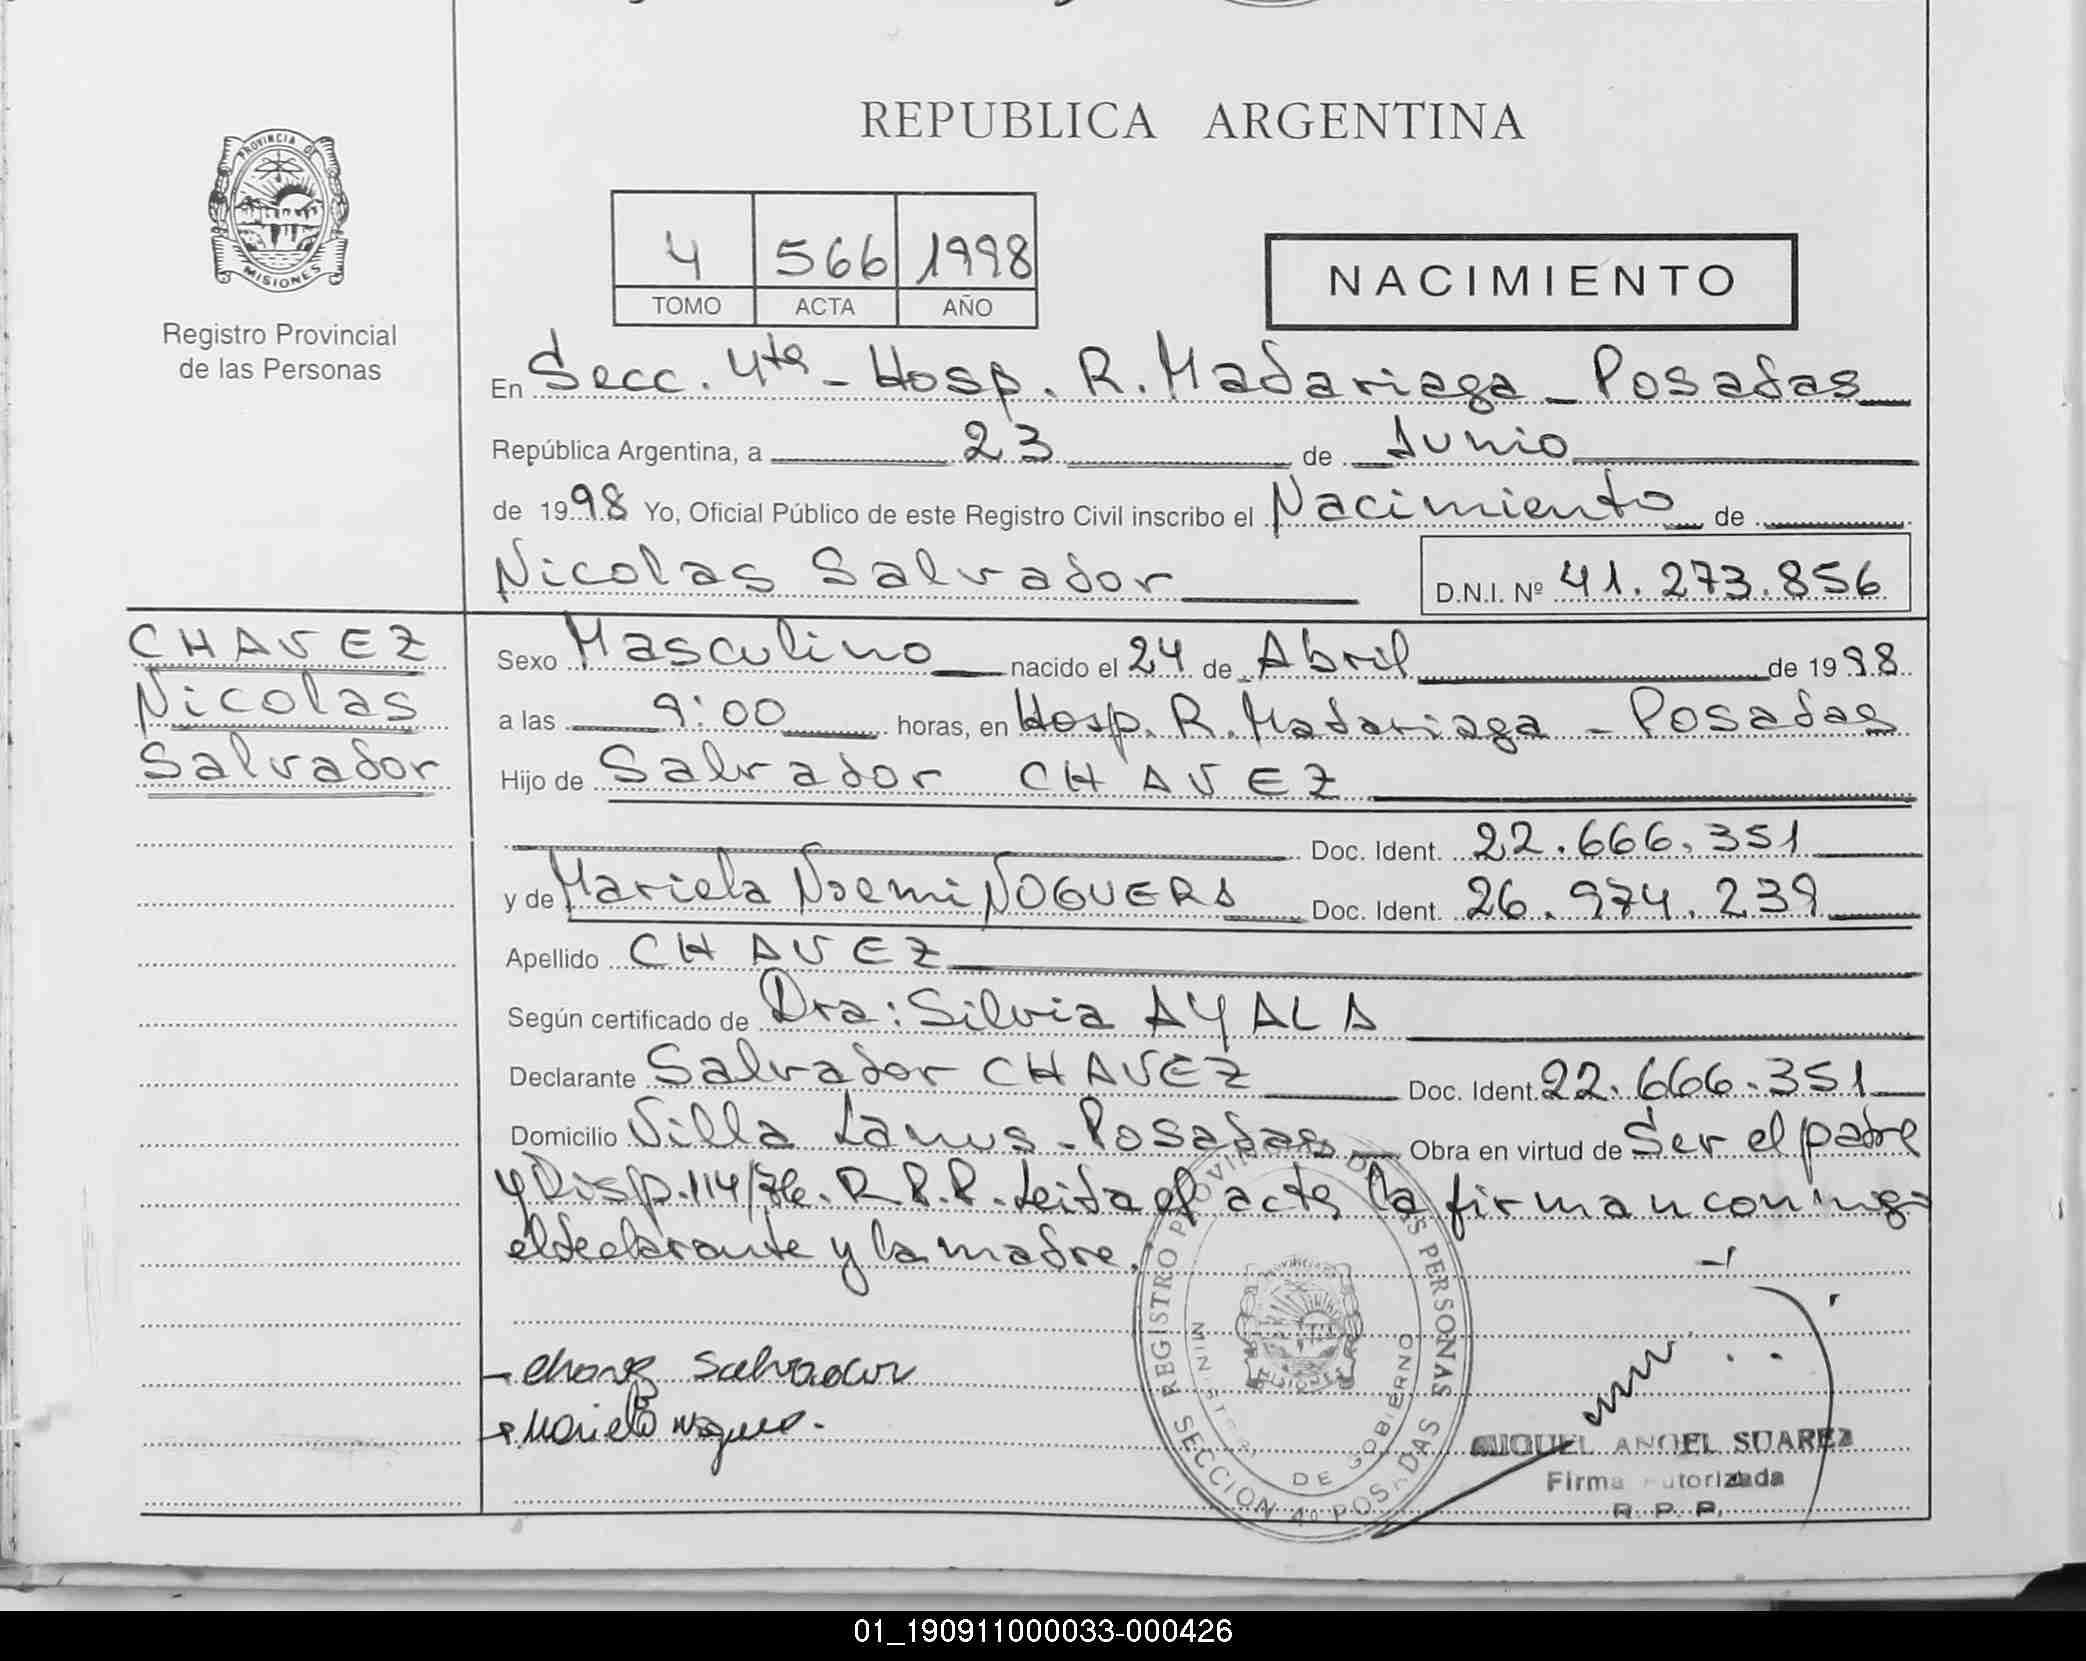 REPUBLICA ARGENTINA
PROVINCIA DE
MISIONES
Registro Provincial
de las Personas
4 566 1998
TOMO ACTA AÑO
NACIMIENTO
En Secc. 4ta - Hosp. R. Madariaga - Posadas
República Argentina, a 23 de Junio
de 1998 Yo, Oficial Público de este Registro Civil inscribo el Nacimiento de
Nicolas Salvador D.N.I. Nº 41.273.856
CHAVEZ
Nicolas
Salvador
Sexo Masculino nacido el 24 de Abril de 1998
a las 9:00 horas, en Hosp. R. Madariaga - Posadas
Hijo de Salvador CHAVEZ
Doc. Ident. 22.666.351
y de Mariela Noemi NOGUERA Doc. Ident. 26.974.239
Apellido CHAVEZ
Según certificado de Dra: Silvia AYALA
Declarante Salvador CHAVEZ Doc. Ident. 22.666.351
Domicilio Villa Lanus - Posadas Obra en virtud de Ser el padre
y Disp. 114/76. R.P.P. Leida el acta la firman conmigo
el declarante y la madre.
REGISTRO PROVINCIAL DE LAS PERSONAS
MINISTERIO DE GOBIERNO
SECCION 4º POSADAS
Chavez Salvador
Mariela Noguera.
MIGUEL ANGEL SUAREZ
Firma Autorizada
R. P. P.
01_190911000033-000426